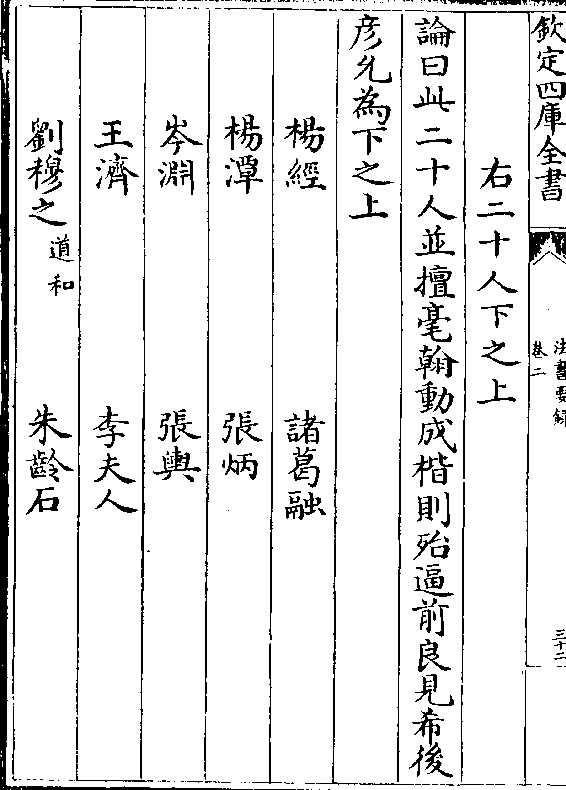 欽定四庫全書
法書要録
卷二
三十二
右二十人下之上
論曰此二十人並擅毫翰動成楷則殆逼前良見希後
彦允為下之上
楊經　諸葛融
楊潭　張炳
岑淵　張輿
王濟　李夫人
劉穆之道和　朱齡石